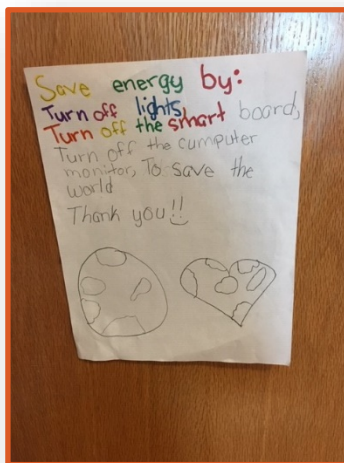 Save energy by:
Turn off lights,
Turn off the smart board,
Turn off the cumputer
monitor, To save the
world
Thank you!!